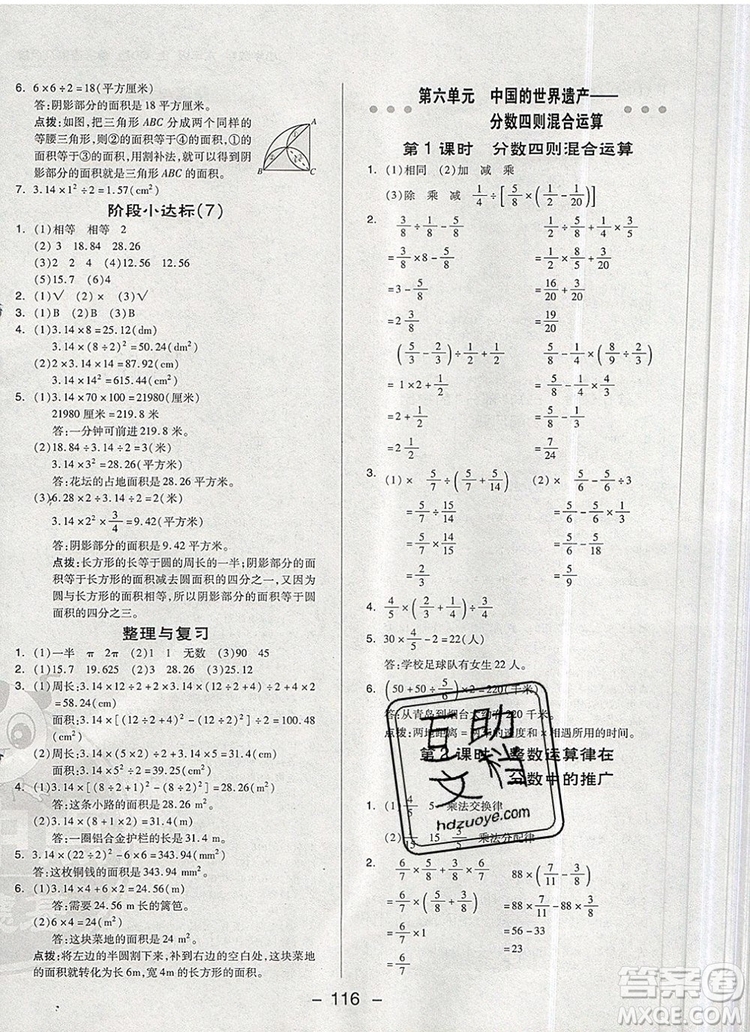 6. 6×6÷2=18(平方厘米)
答:阴影部分的面积是 18 平方厘米。
点拨:如图,把三角形 ABC 分成两个同样的
等腰三角形,则②的面积与④的面积相等,①的
面积与③的面积相等,用割补法,就可以说明阴
影部分的面积就是三角形 ABC 的面积。
A
B
C
7. 3.14×1²÷2=1.57(cm²)
阶段小达标(7)
1. (1)相等 相等 2
(2)3 18.84 28.26
(3)2 2 4 12.56 12.56
(5)15.7 (4)28.26
2. (1)√ (2)× (3)√
3. (1)B (2)B (3)B
4. (1)3.14×8=25.12(dm)
3.14×(8÷2)²=50.24(dm²)
(2)2×3.14×14=87.92(cm)
3.14×14²=615.44(cm²)
5. (1)3.14×70×100=21980(厘米)
21980 厘米=219.8 米
答:一分钟可前进 219.8 米。
(2)18.84÷3.14÷2=3(米)
3.14×3²=28.26(平方米)
答:花坛的占地面积是 28.26 平方米。
(3)6.28×2÷3.14÷2=2(米)
3.14×2²×3/4=9.42(平方米)
答:阴影部分的面积是 9.42 平方米。
点拨:长方形的长等于圆的周长的一半;阴影部分的面
积等于长方形的面积减去圆面积的四分之一,又因为长
方形的面积和圆的面积相等,所以阴影部分的面积等于圆
面积的四分之三。
整理与复习
1. (1)一半 π 2π (2)1 无数 (3)90 45
2. (1)15.7 19.625 (2)25.12 (3)25.12
3. (1)周长:3.14×12÷2+3.14×(12÷2)÷2×2+12÷2×2
=58.24(cm)
面积:3.14×[(12÷2)²-(12÷2÷2)²]÷2=100.48
(cm²)
(2)周长:3.14×(5×2)=31.4(cm)
面积:3.14×5²-3.14×(5×2÷2)²÷2=39.25(cm²)
4. (1)3.14×[(8÷2+1)²-(8÷2)²]=28.26(m²)
答:这条小路的面积是 28.26 m²。
(2)3.14×(8+1×2)=31.4(m)
答:一圈铝合金护栏的长是 31.4 m。
5. 3.14×(22÷2)²-6×6=343.94(mm²)
答:这枚铜钱的面积是 343.94 mm²。
6. (1)3.14×4÷2+3.14×4÷2+6×2=24.56(m)
答:需要 24.56 m 长的篱笆。
(2)6×4=24(m²)
答:这块菜地的面积是 24 m²。
点拨:将左边的半圆割下来,补到右面的空白处,这块菜地
的面积就转化为长 6m,宽 4m 的长方形的面积。
第六单元 中国的世界遗产——
分数四则混合运算
第 1 课时 分数四则混合运算
1. (1)相同 (2)加 减 乘
(3)除 乘 减 1/4÷[5/8×(1/2-1/20)]
2. 3/8÷1/8-5/8 16/9×3/10+1/3÷5/9
=3/8×8-5/8 =16/20+3/20... 
=3-5/8
=2 3/8 =19/20
(5/3-2/3)÷1/2+1/2
=1×2+1/2
=2 1/2 =7/24
3. (1)× 5/7÷(5/7+5/14) (2)× 5/6-5/6÷3
=5/7÷15/14 =5/6-5/6×1/3
=5/7×14/15 =5/6-5/18
=2/3 =5/9
4. 4/5×(2/3+1/4)÷3/4
5. 30×4/5-2=22(人)
答:学校足球队有女生 22 人。
6. (50+50÷5/6)×2=220(千米)
答:从青岛到烟台大约有 220 千米。
点拨:两地距离=两车的速度和×相遇所用的时间。
第 2 课时 整数运算律在
分数中的推广
1. (1)4/5 5 乘法交换律
乘法分配律
2. 6/7×5/8+6/7×3/8 88×(7/11-3/8)
=6/7×(5/8+3/8) =88×7/11-88×3/8
=6/7×1 =56-33
=6/7 =23
- 116 -
互助
文档
hdzuoye.com
答案圈
MXQE.COM